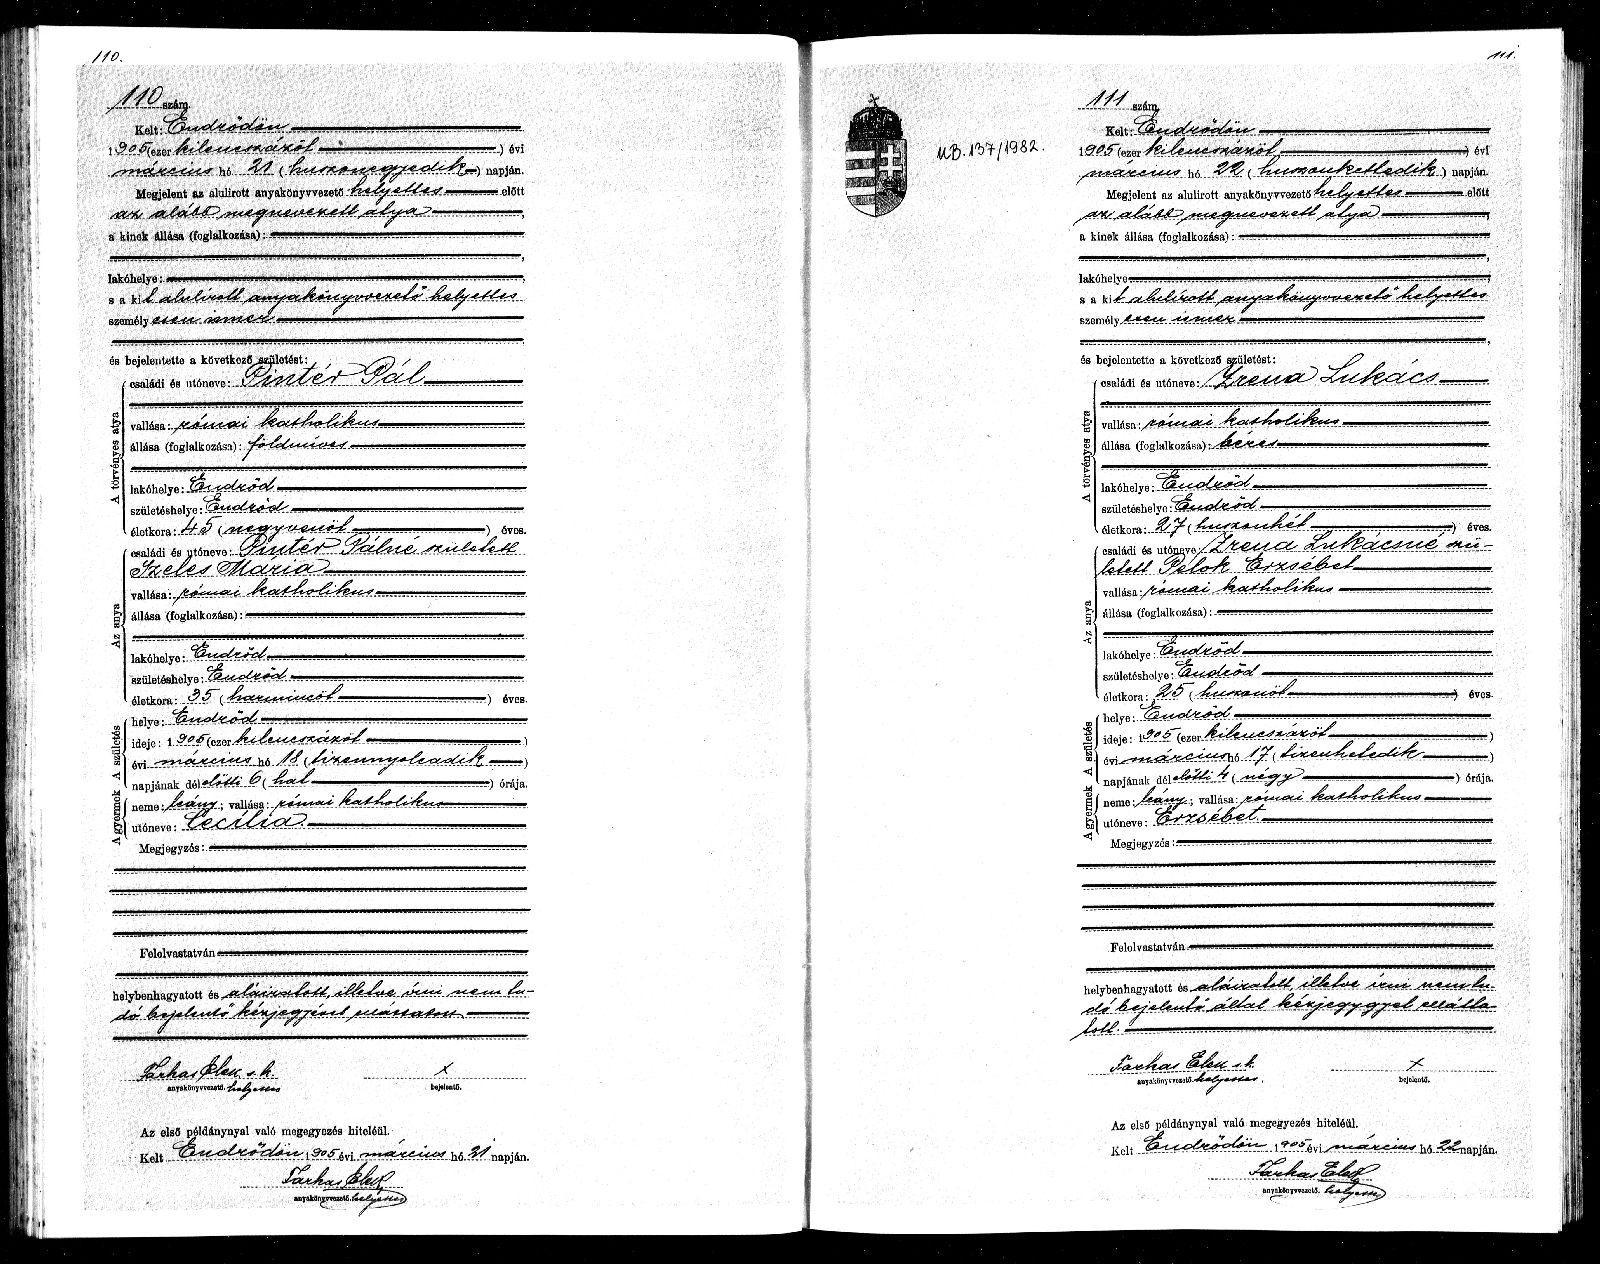 110.
110 szám.
Kelt: Endrődön
1905 (ezer kilencszázöt) évi
március hó 21 (huszonegyedik) napján.
Megjelent az alulirott anyakönyvvezető helyettes előtt
az alább megnevezett atya,
a kinek állása (foglalkozása):
lakóhelye:
s a kit alulirott anyakönyvvezető helyettes
személyesen ismer
és bejelentette a következő születést:
A törvényes atya
családi és utóneve: Pintér Pál
vallása: római katholikus
állása (foglalkozása): földmüves
lakóhelye: Endrőd
születéshelye: Endrőd
életkora: 45 (negyvenöt) éves.
Az anya
családi és utóneve: Pintér Pálné született
Szeles Mária
vallása: római katholikus
állása (foglalkozása):
lakóhelye: Endrőd
születéshelye: Endrőd
életkora: 35 (harmincöt) éves
A gyermek A születés
helye: Endrőd
ideje: 1905 (ezer kilencszázöt)
évi március hó 18 (tizennyolcadik)
napjának délelőtti 6 (hat) órája.
neme: leány; vallása: római katholikus
utóneve: Cecilia
Megjegyzés:
Felolvastatván
helybenhagyatott és aláiratott, illetve irni nem tu-
dó bejelentő kézjegyével
Farkas Elek s.k.
anyakönyvvezető helyettes
x
bejelentő.
Az első példánynyal való megegyezés hiteléül.
Kelt Endrődön 1905 évi március hó 21 napján.
Farkas Elek
anyakönyvvezető. helyettes
111.
MB. 137/1982.
111 szám.
Kelt: Endrődön
1905 (ezer kilencszázöt) évi
március hó 22 (huszonkettedik) napján.
Megjelent az alulirott anyakönyvvezető helyettes előtt
az alább megnevezett atya
a kinek állása (foglalkozása):
lakóhelye
s a kit alulirott anyakönyvvezető helyettes
személyesen ismer
és bejelentette a következő születést:
A törvényes atya
családi és utóneve: Zrena Lukács
vallása: római katholikus
állása (foglalkozása): béres
lakóhelye: Endrőd
születéshelye: Endrőd
életkora: 27 (huszonhét) éves.
Az anya
családi és utóneve Zrena Lukácsné szü-
letett Pelok Erzsébet
vallása: római katholikus
állása (foglalkozása):
lakóhelye: Endrőd
születéshelye: Endrőd
életkora: 25 (huszonöt) éves
A gyermek A születés
helye: Endrőd
ideje: 1905 (ezer kilencszázöt)
évi március hó 17 (tizenhetedik)
napjának délelőtti 4 (négy) órája.
neme: leány; vallása: római katholikus
utóneve: Erzsébet
Megjegyzés:
Felolvastatván
helybenhagyatott és aláiratott, illetve irni nem tu-
dó bejelentő által kézjegygyel ellátta-
tott.
Farkas Elek s.k.
anyakönyvvezető helyettes.
x
bejelentő.
Az első példánynyal való megegyezés hiteléül.
Kelt Endrődön 1905 évi március hó 22 napján.
Farkas Elek
anyakönyvvezető. helyettes